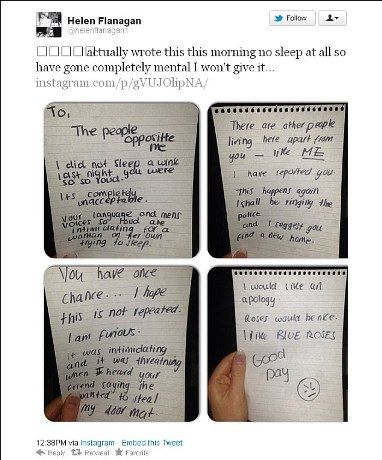 Helen Flanagan
@helenflanagan1
Follow
actually wrote this this morning no sleep at all so
have gone completely mental I won't give it...
instagram.com/p/gVUJOlipNA/
To,
The people
opposite
me
I did not sleep a wink
last night you were
so so loud.
Its completely
unacceptable.
Your language and mens
voices so loud are
intimidating for a
woman on her own
trying to sleep.
There are other people
living here apart from
you — like ME
I have reported you.
This happens again
I shall be ringing the
police
and I suggest you
find a new home.
You have once
chance... I hope
this is not repeated.
I am furious.
it was intimidating
and it was threatning
when I heard your
friend saying she
wanted to steal
my door mat.
I would like an
apology.
Roses would be nice.
I like BLUE ROSES
Good
Day
12:38PM via Instagram Embed this Tweet
Reply Retweet Favorite